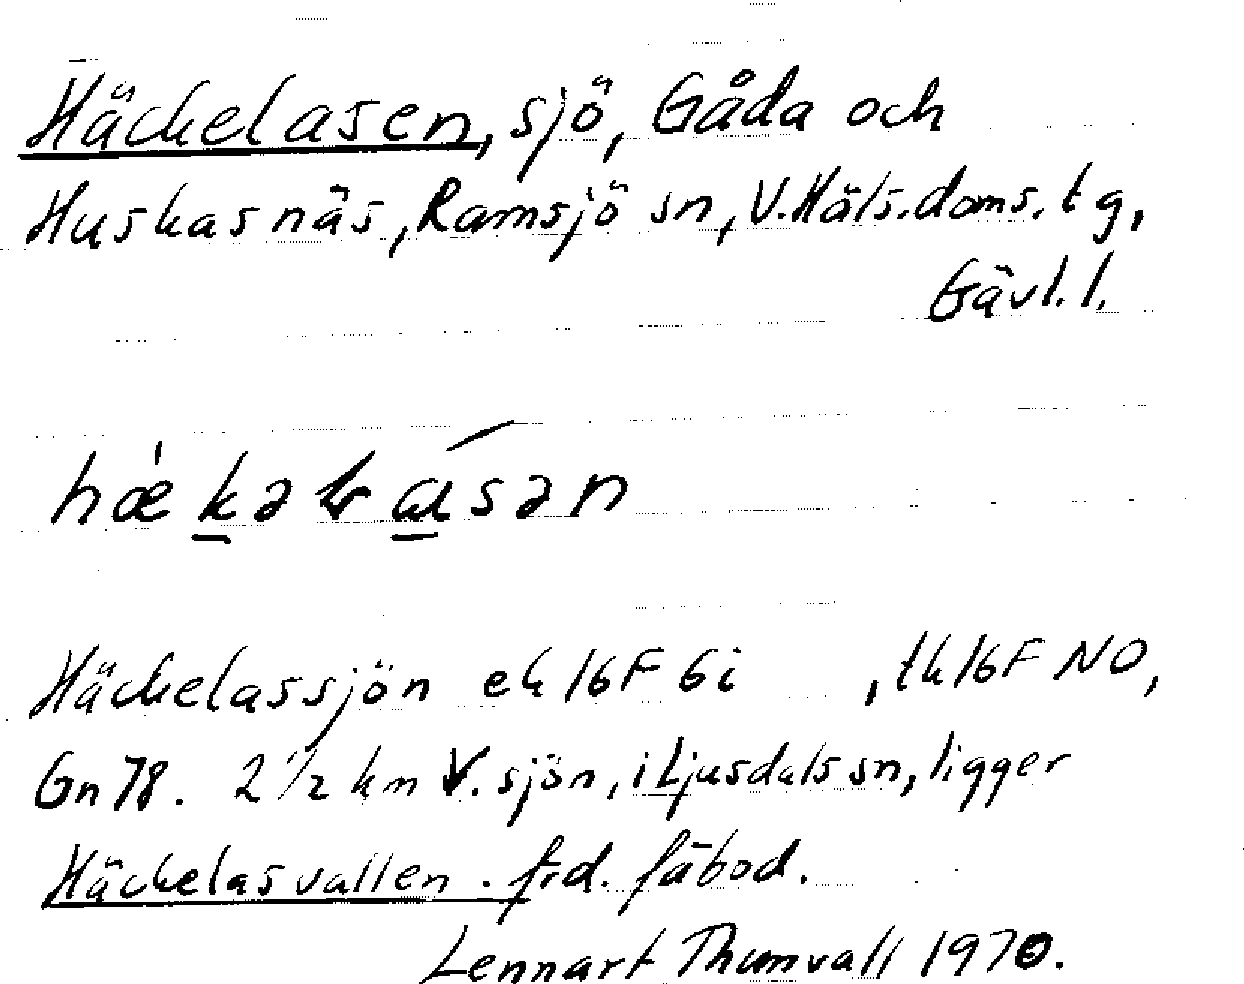 Häckelasen, sjö, Gåda och
Huskasnäs, Ramsjö sn, V.Häls.doms.tg,
Gävl.l.
Häckelassjön ek 16F 6i , tk 16F NO,
Gn 78. 2 1/2 km V. sjön, i Ljusdals sn, ligger
Häckelasvallen. frd. fäbod.
Lennart Thumvall 1970.